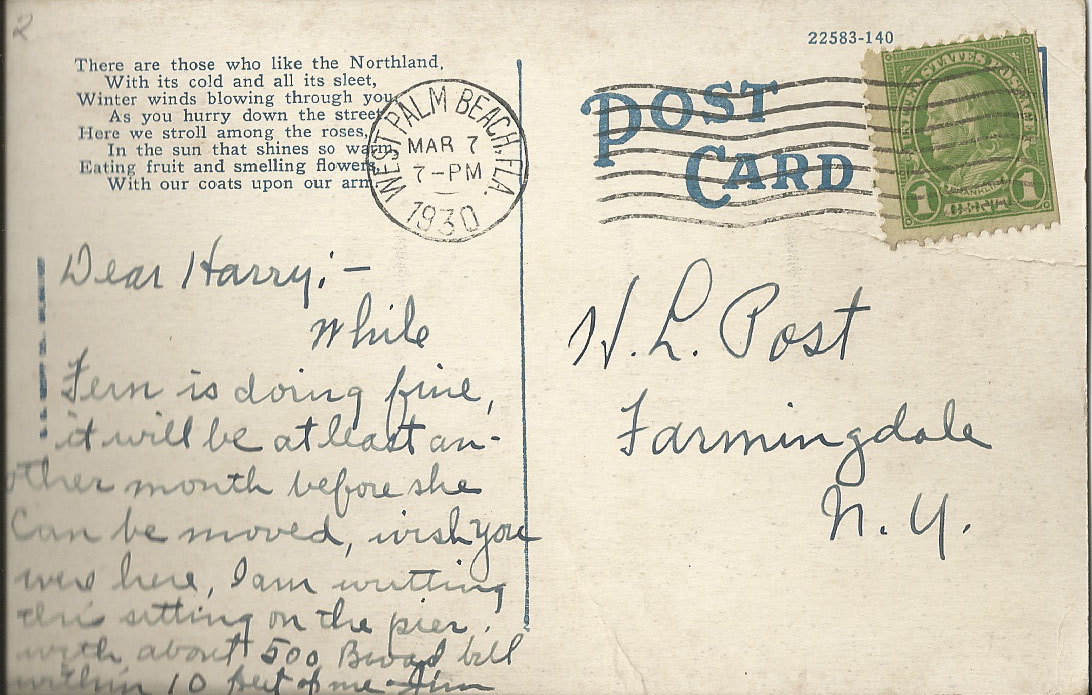 2
22583-140
There are those who like the Northland,
With its cold and all its sleet,
Winter winds blowing through you
As you hurry down the street
Here we stroll among the roses,
In the sun that shines so warm
Eating fruit and smelling flowers,
With our coats upon our arm.
WEST PALM BEACH, FLA.
MAR 7
7-PM
1930
POST
CARD
UNITED STATES POSTAGE
1 1
Dear Harry:-
While
Fern is doing fine,
it will be at least an-
other month before she
Can be moved, wish you
were here, I am writting
this sitting on the pier,
with about 500 Broad bill
within 10 feet of me Jim
H. L. Post
Farmingdale
N. Y.